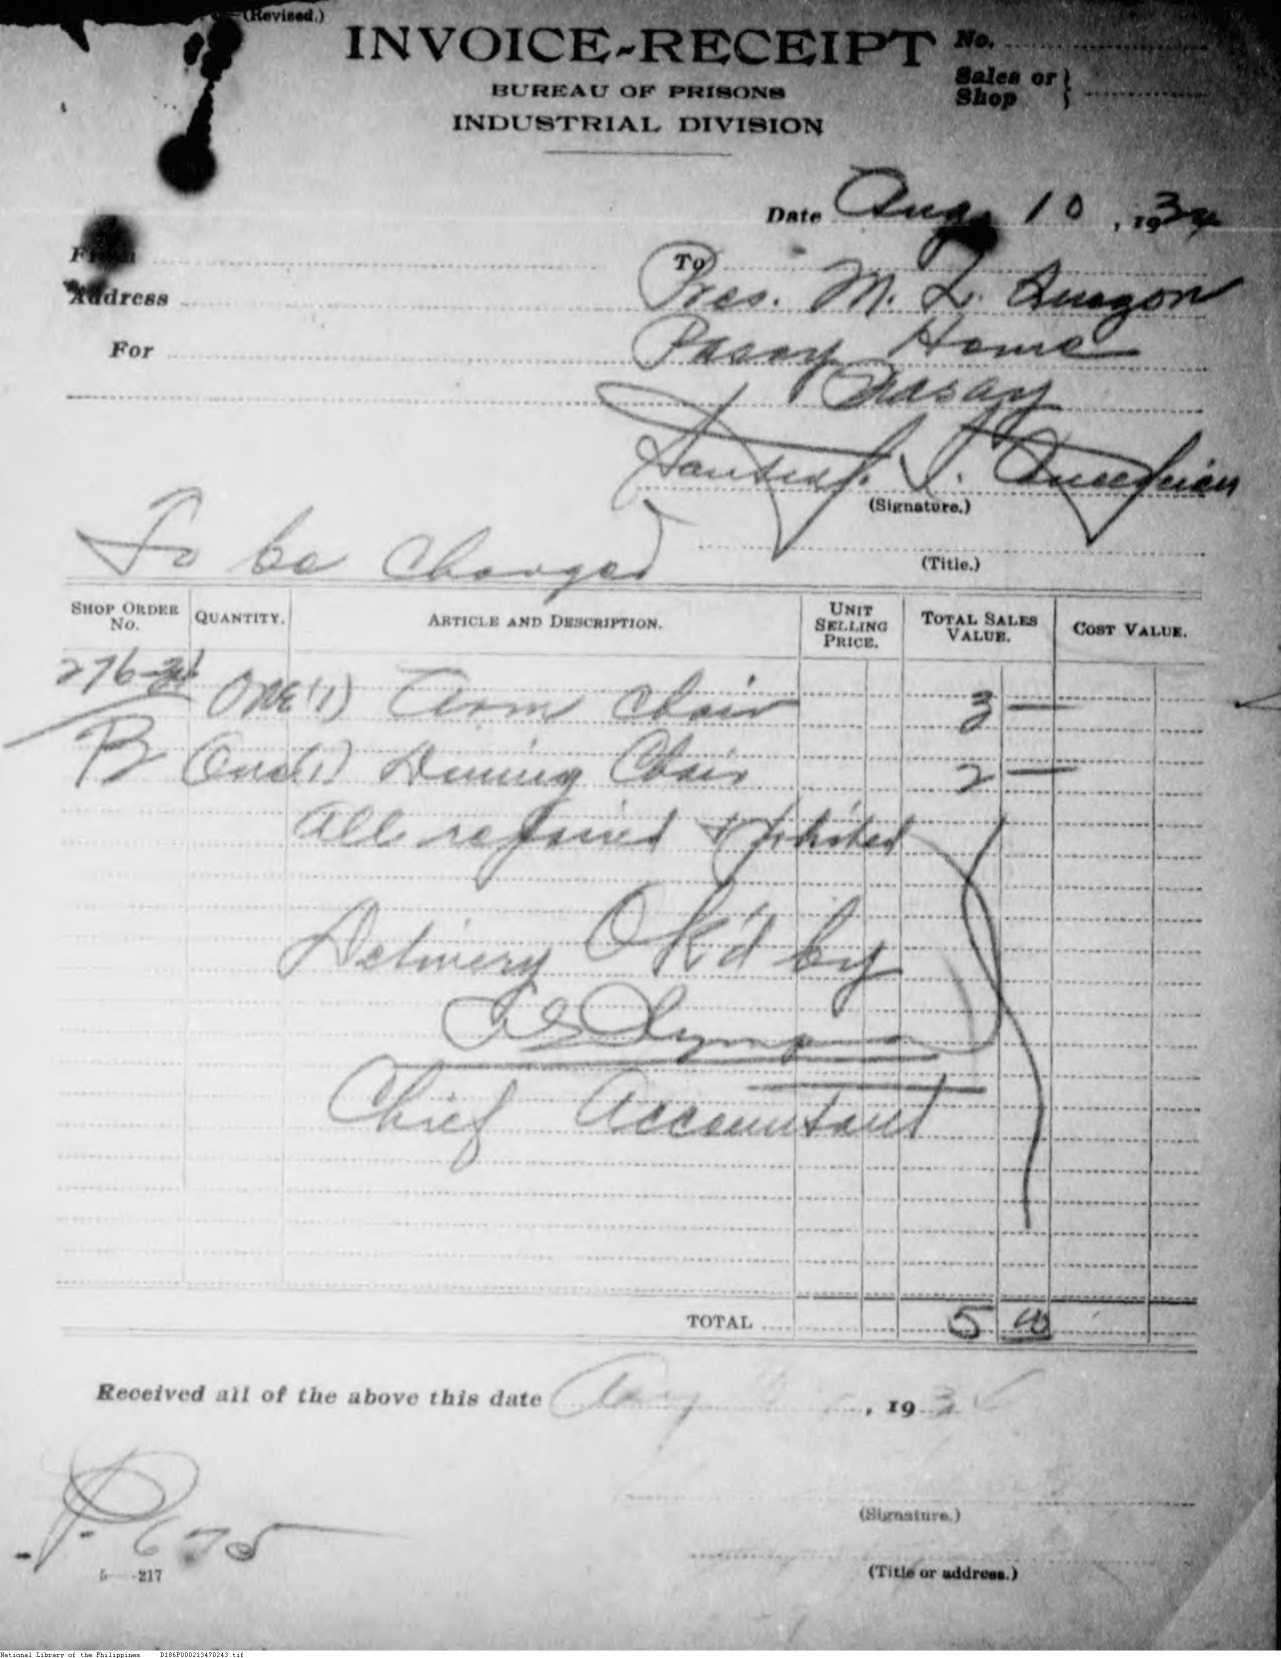 (Revised.)
INVOICE-RECEIPT
No.
BUREAU OF PRISONS
Sales or
Shop
INDUSTRIAL DIVISION
Date Aug. 10, 1934
From
To
Address
Pres. M. L. Quezon
For
Pasay Home
Pasay
(Signature.)
To be charged
(Title.)
SHOP ORDER No. QUANTITY. ARTICLE AND DESCRIPTION. UNIT SELLING PRICE. TOTAL SALES VALUE. COST VALUE.
276-34 One (1) Arm chair 3 —
B One (1) Dining Chair 2 —
all repaired &
Delivery OK'd by
Chief Accountant
TOTAL 5 00
Received all of the above this date Aug , 193
(Signature.)
(Title or address.)
5 -217
National Library of the Philippines D186P000213470243.tif